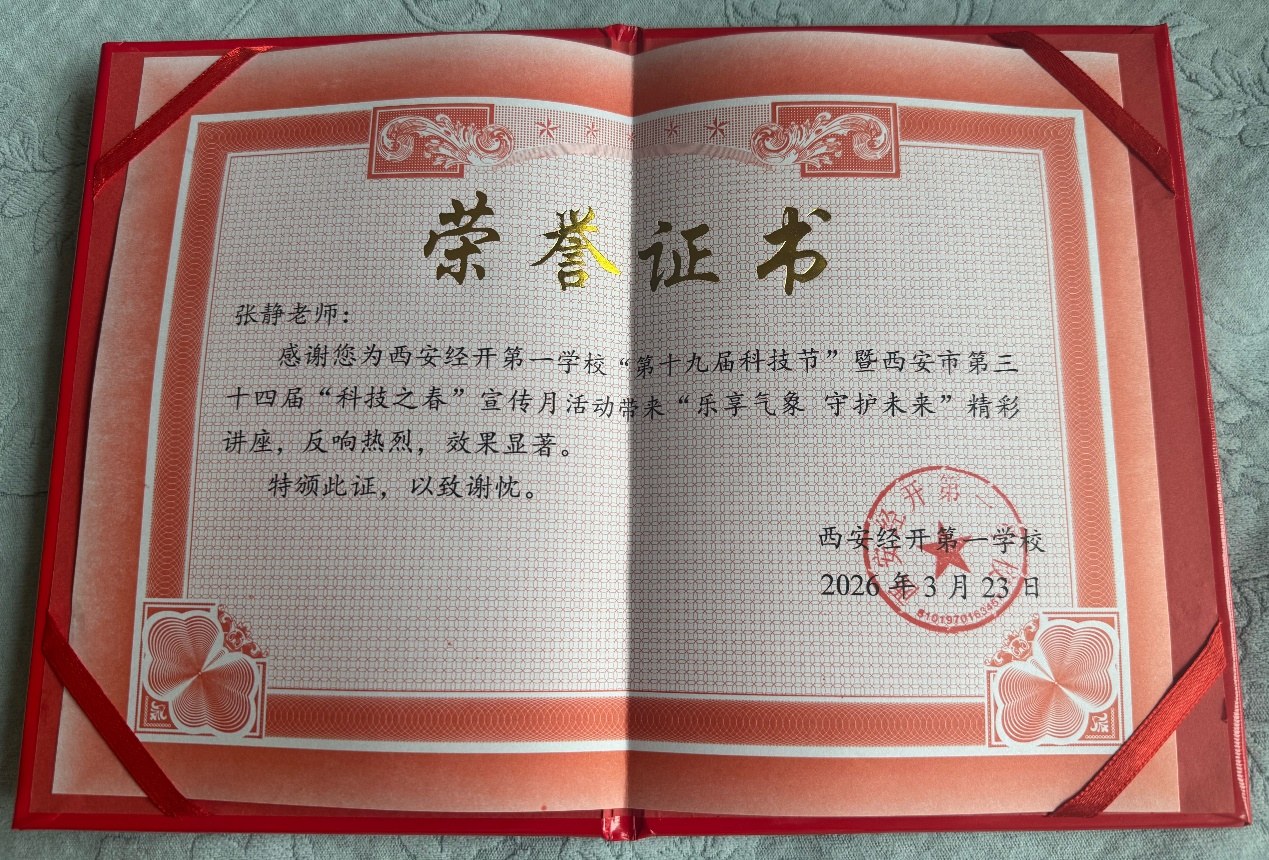 荣誉证书
张静老师：
感谢您为西安经开第一学校“第十九届科技节”暨西安市第三
十四届“科技之春”宣传月活动带来“乐享气象 守护未来”精彩
讲座，反响热烈，效果显著。
特颁此证，以致谢忱。
西安经开第一学校
2026年3月23日